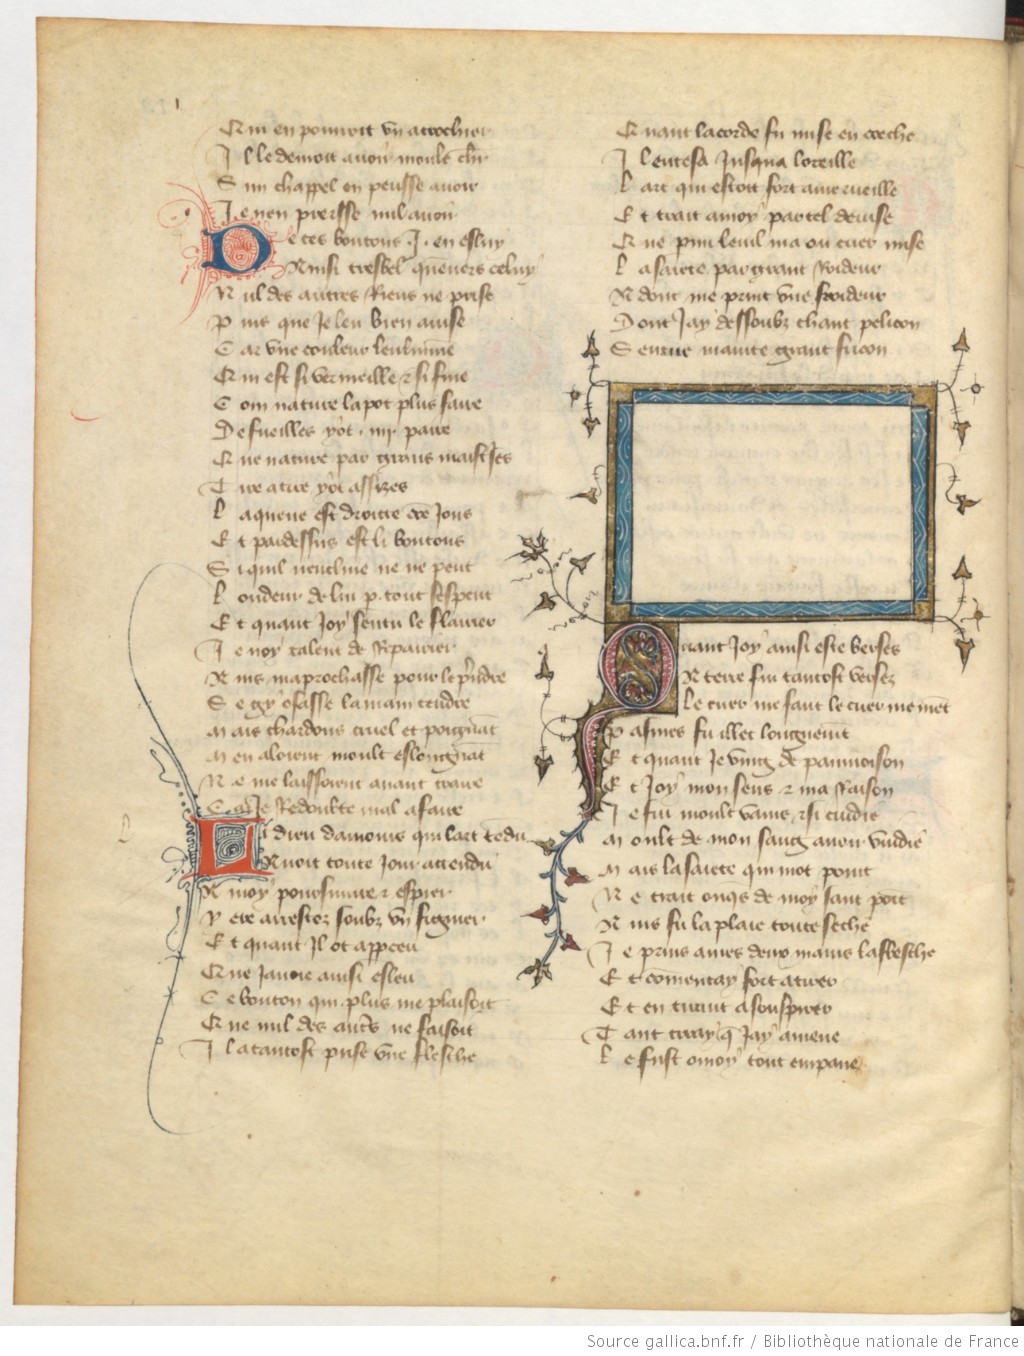 Qui en pourroit vn acrochier
Il le deuroit auoir moult chr
Sun chappel en peusse auoir
Je nen preisse nul auoir
De ces boutons .J. en esluy
Ainsi tresbel quenuers celuy
Nul des autres Riens ne prise
Puis que Je leu bien auise
Car vne couleur lenlumine
Qui est si vermeille & si fine
Com nature la pot plus faire
De fueilles y ot .iiij. paire
Que nature par grans maistres
Tire a tire y ot assizes
La queue est droitte cõe Jons
Et par dessus est li boutons
Si quil nencline ne ne pent
Londeur de lui p. tout sespent
Et quant Joy sentu le flairer
Je noy talent de Repairier
Ains maprochasse pour le prẽdre
Se gy osasse la main tendre
Mais chardons cruel et poignãt
Men aloient moult eslongnãt
Ne me laissoient auant traire
Car Je Redoubte mal a faire
Li dieu damours qui lart tẽdu
Auoit toute Jour attendu
A moy poursuiure & espier
Yere arrestez soubz vn figuier
Et quant Il ot appceu
Que Jauoie ainsi esleu
Ce bouton qui plus me plaisoit
Que nul des autrs ne faisoit
Il a tantost prise vne flesche
Quant la corde fu mise en coche
Il entesa Jusqua loreille
Lart qui estoit fort a merueille
Et trait a moy par tel deuise
Que pmi leuil ma ou cuer mise
La saiette par grant Roideur
Adont me print vne froideur
Dont Jay dessoubz chant pelicon
Sentue mainte grant fricon
Quant Joy ainsi este bersez
A terre fui tantost versez
Le cuer me faut le cuer me mẽt
Pasmes fu illec longuemt
Et quant Je ving de paumoison
Et Joy mon sens & ma Raison
Je fui moult vains & si cuidie
Moult de mon sang auoir vuidie
Mais la saiete qui mot point
Ne trait onqs de moy sanc point
Ains fu la plaie toute seche
Je prins a mes deux mains la flesche
Et comencay fort a tirer
Et en tirant a souspirer
Tant tiray q Jay amene
Le fust o moy tout empane
Source gallica.bnf.fr / Bibliothèque nationale de France